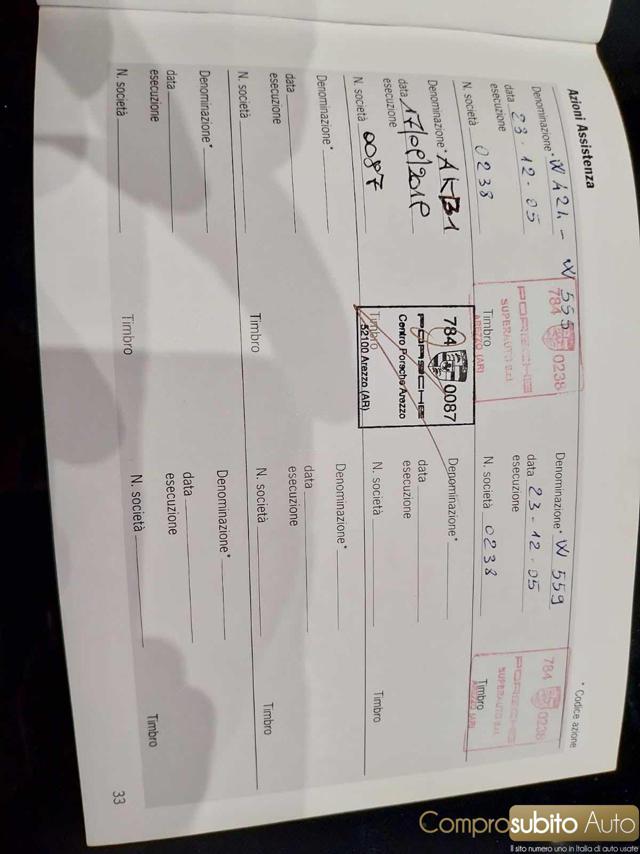 Azioni Assistenza
* Codice azione
Denominazione* W A24 - W 555
data 23.12.05
esecuzione
N. società 0238
784 0238
PORSCHE
SUPERAUTO S.r.l.
Timbro
AREZZO (AR)
Denominazione* W 559
data 23-12-05
esecuzione
N. società 0238
784 0238
PORSCHE
SUPERAUTO S.r.l.
Timbro
AREZZO (AR)
Denominazione* AKB1
data
esecuzione
N. società 0087
784 0087
PORSCHE
Centro Porsche Arezzo
Timbro
52100 Arezzo (AR)
Denominazione*
data
esecuzione
N. società
Timbro
Denominazione*
data
esecuzione
N. società
Timbro
Denominazione*
data
esecuzione
N. società
Timbro
Denominazione*
data
esecuzione
N. società
Timbro
Denominazione*
data
esecuzione
N. società
Timbro
33
Comprosubito Auto
Il sito numero uno in Italia di auto usate